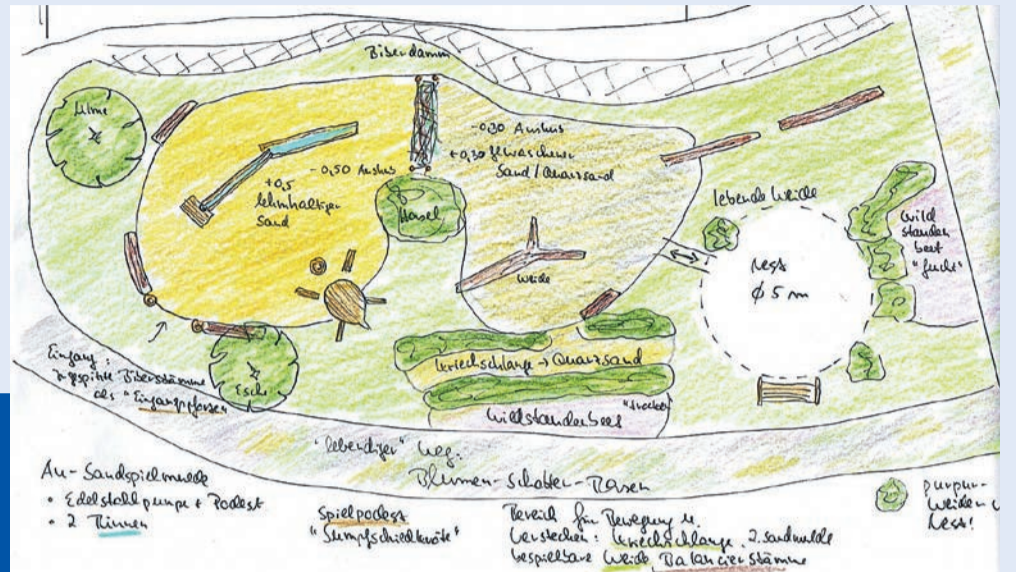 Biberdamm
Ulme
-0,30 Aushub
+0,30 gewaschener
Sand / Quarzsand
-0,50 Aushub
+0,5
lehmhaltiger
Sand
Hasel
lebende Weide
Wild
stauden
beet
"feucht"
Nest
ø 5 m
Weide
Kriechschlange → Quarzsand
Eingang:
zugespitzte Biberstämme
als "Eingangspfosten"
Esche
"trocken"
Wildstaudenbeet
"lebendiger" Weg:
Blumen-Schotter-Rasen
Au-Sandspielmulde
• Edelstahlpumpe + Podest
• 2 Rinnen
Spielpodest
"Sumpfschildkröte"
Bereich für Bewegung u.
Verstecken: Kriechschlange, 2. Sandmulde
bespielbare Weide, Balancierstämme
purpur-
weiden
Nest!